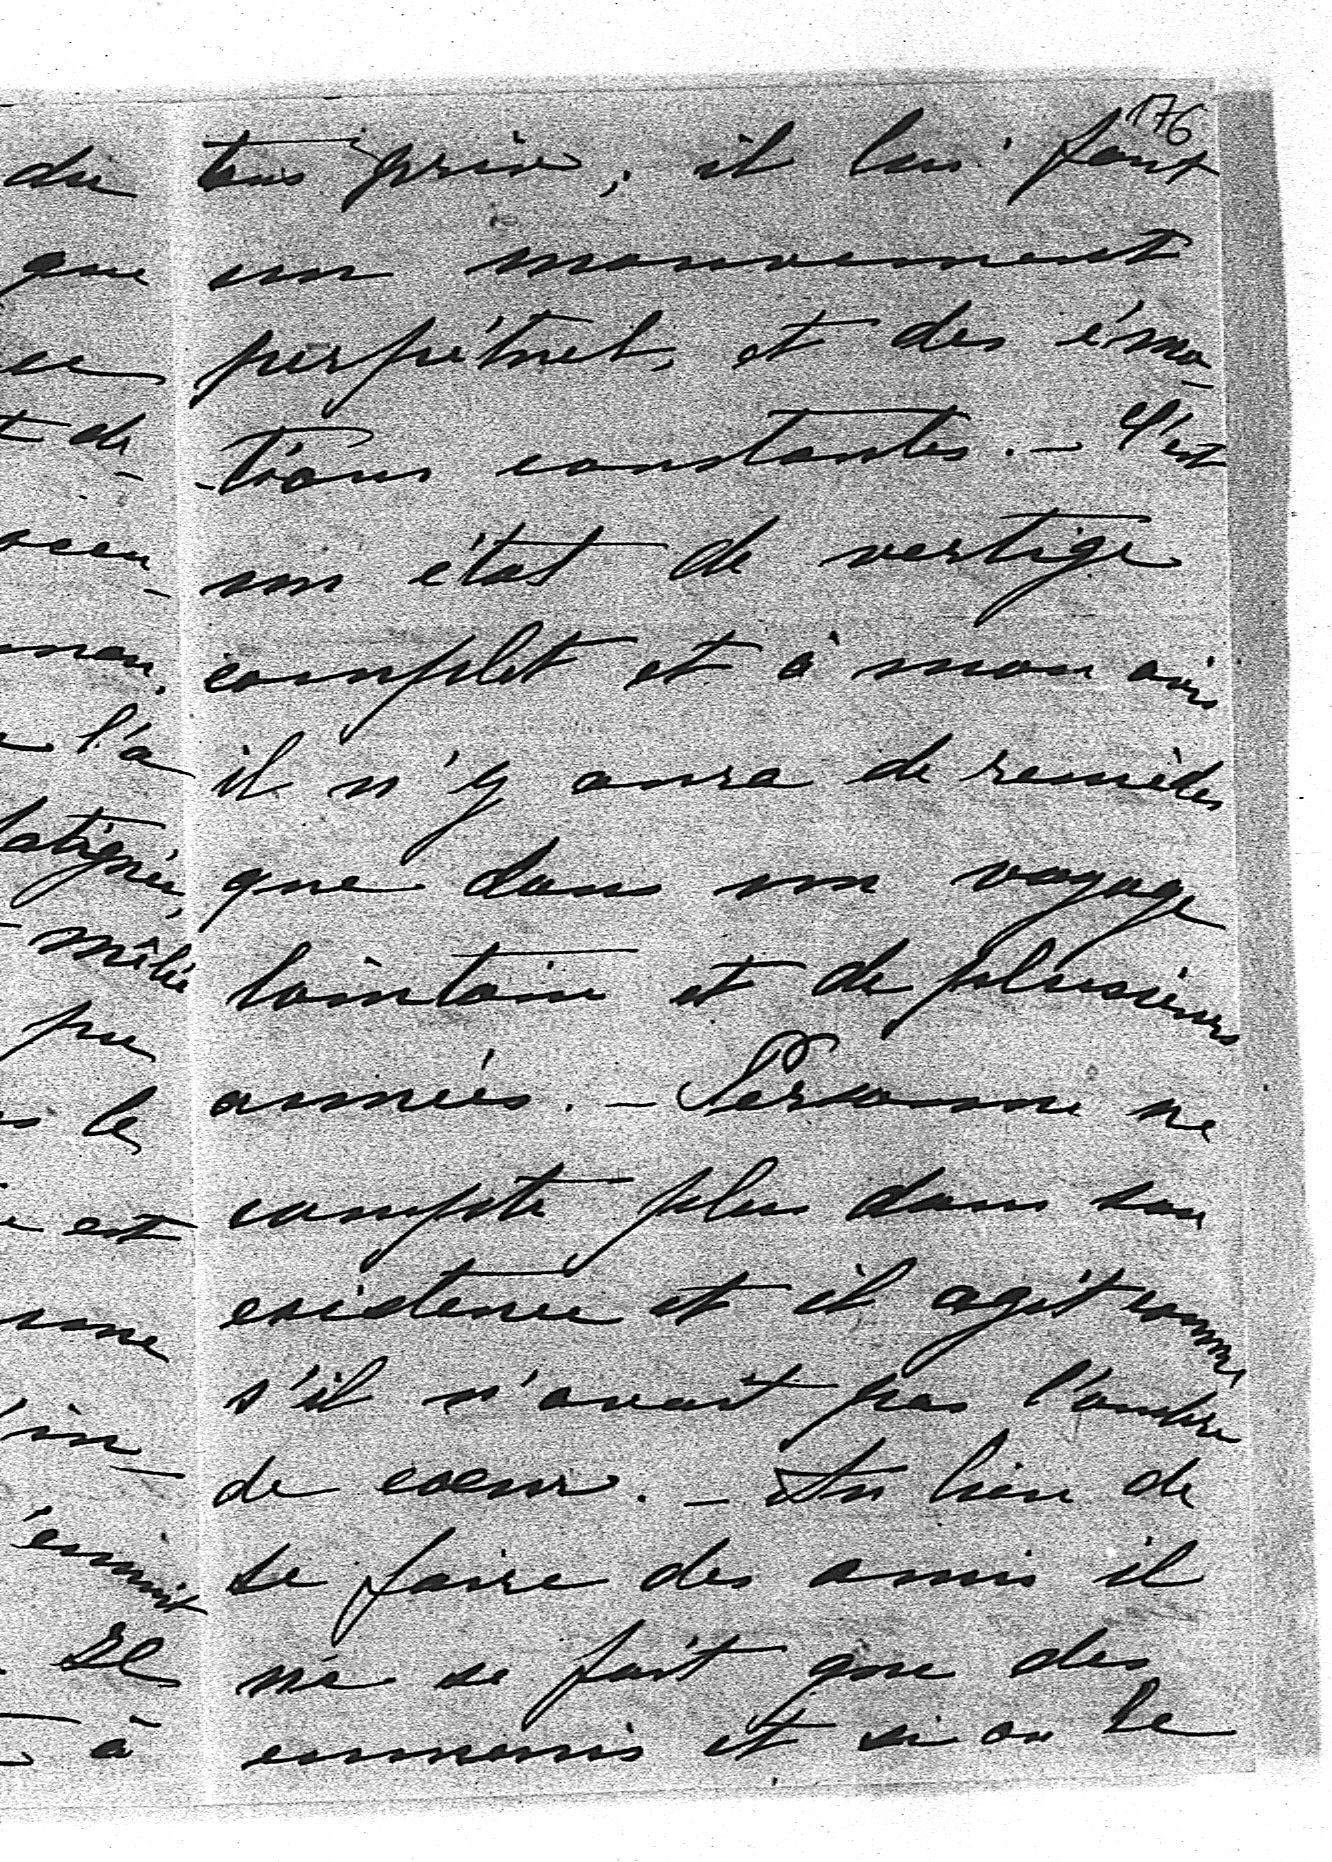 176
tous prix, il lui faut
un mouvement
perpétuel, et des émo-
-tions constantes. - C'est
un état de vertige
complet et à mon avis
il n'y aura de remèdes
que dans un voyage
lointain et de plusieurs
années. - Personne ne
compte plus dans son
existence et il agit comme
s'il n'avait pas l'ombre
de coeur. - Au lieu de
se faire des amis il
ne se fait que des
ennemis et si on le
du
que
ce
t de-
l'a
fatiguée,
mêlée
pu
le
est
in-
se
à